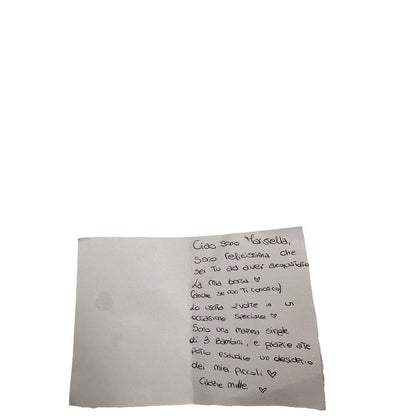 Ciao sono Mariella,
Sono felicissima che
sei Tu ad aver acquistato
La mia borsa ♡
(anche se non Ti conosco)
Lo usata 2 volte in un
occasione speciale ♡
Sono una mamma single
di 3 Bambini, e grazie a te
potrò esaudire un desiderio
dei miei piccoli ♡
Grazie mille ♡